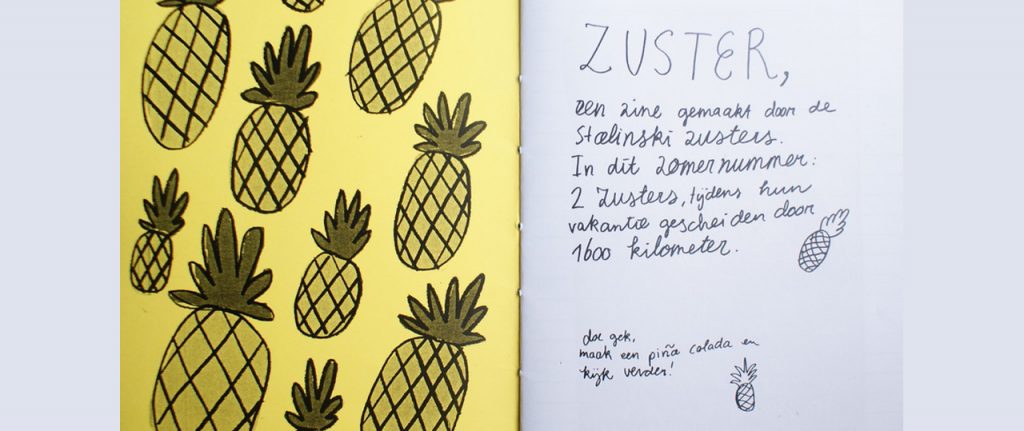 ZUSTER,
een zine gemaakt door de
Stalinski zusters.
In dit zomernummer:
2 Zusters, tijdens hun
vakantie gescheiden door
1600 kilometer.
doe gek,
maak een piña colada en
kijk verder!